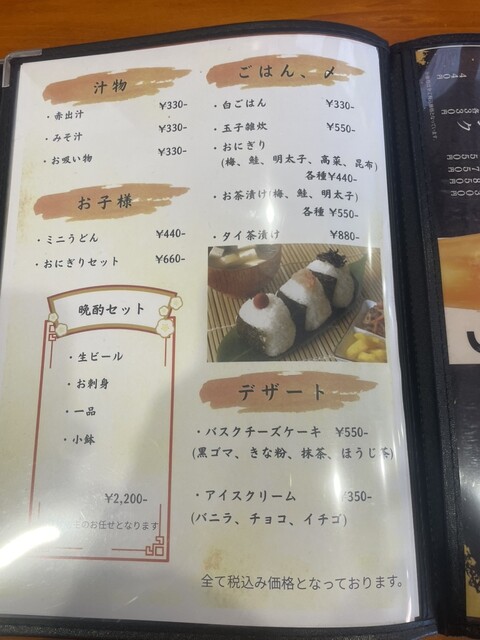 汁物
・赤出汁 ¥330-
・みそ汁 ¥330-
・お吸い物 ¥330-
お子様
・ミニうどん ¥440-
・おにぎりセット ¥660-
晩酌セット
・生ビール
・お刺身
・一品
・小鉢
¥2,200-
のお任せとなります
ごはん、〆
・白ごはん ¥330-
・玉子雑炊 ¥550-
・おにぎり
(梅、鮭、明太子、高菜、昆布)
各種¥440-
・お茶漬け(梅、鮭、明太子)
各種 ¥550-
・タイ茶漬け ¥880-
デザート
・バスクチーズケーキ ¥550-
(黒ゴマ、きな粉、抹茶、ほうじ茶)
・アイスクリーム ¥350-
(バニラ、チョコ、イチゴ)
全て税込み価格となっております。